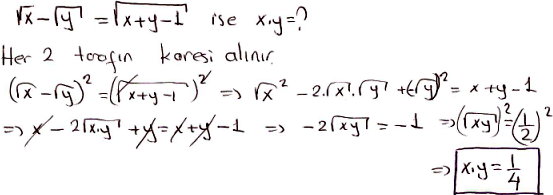 √x - √y = √x+y-1 ise x.y=?
Her 2 tarafın karesi alınır.
(√x - √y)² = (√x+y-1)² => √x² - 2.√x.√y + (√y)² = x+y-1
=> x - 2√x.y + y = x+y-1 => -2√xy = -1 => (√xy)² = (1/2)²
=> x.y = 1/4